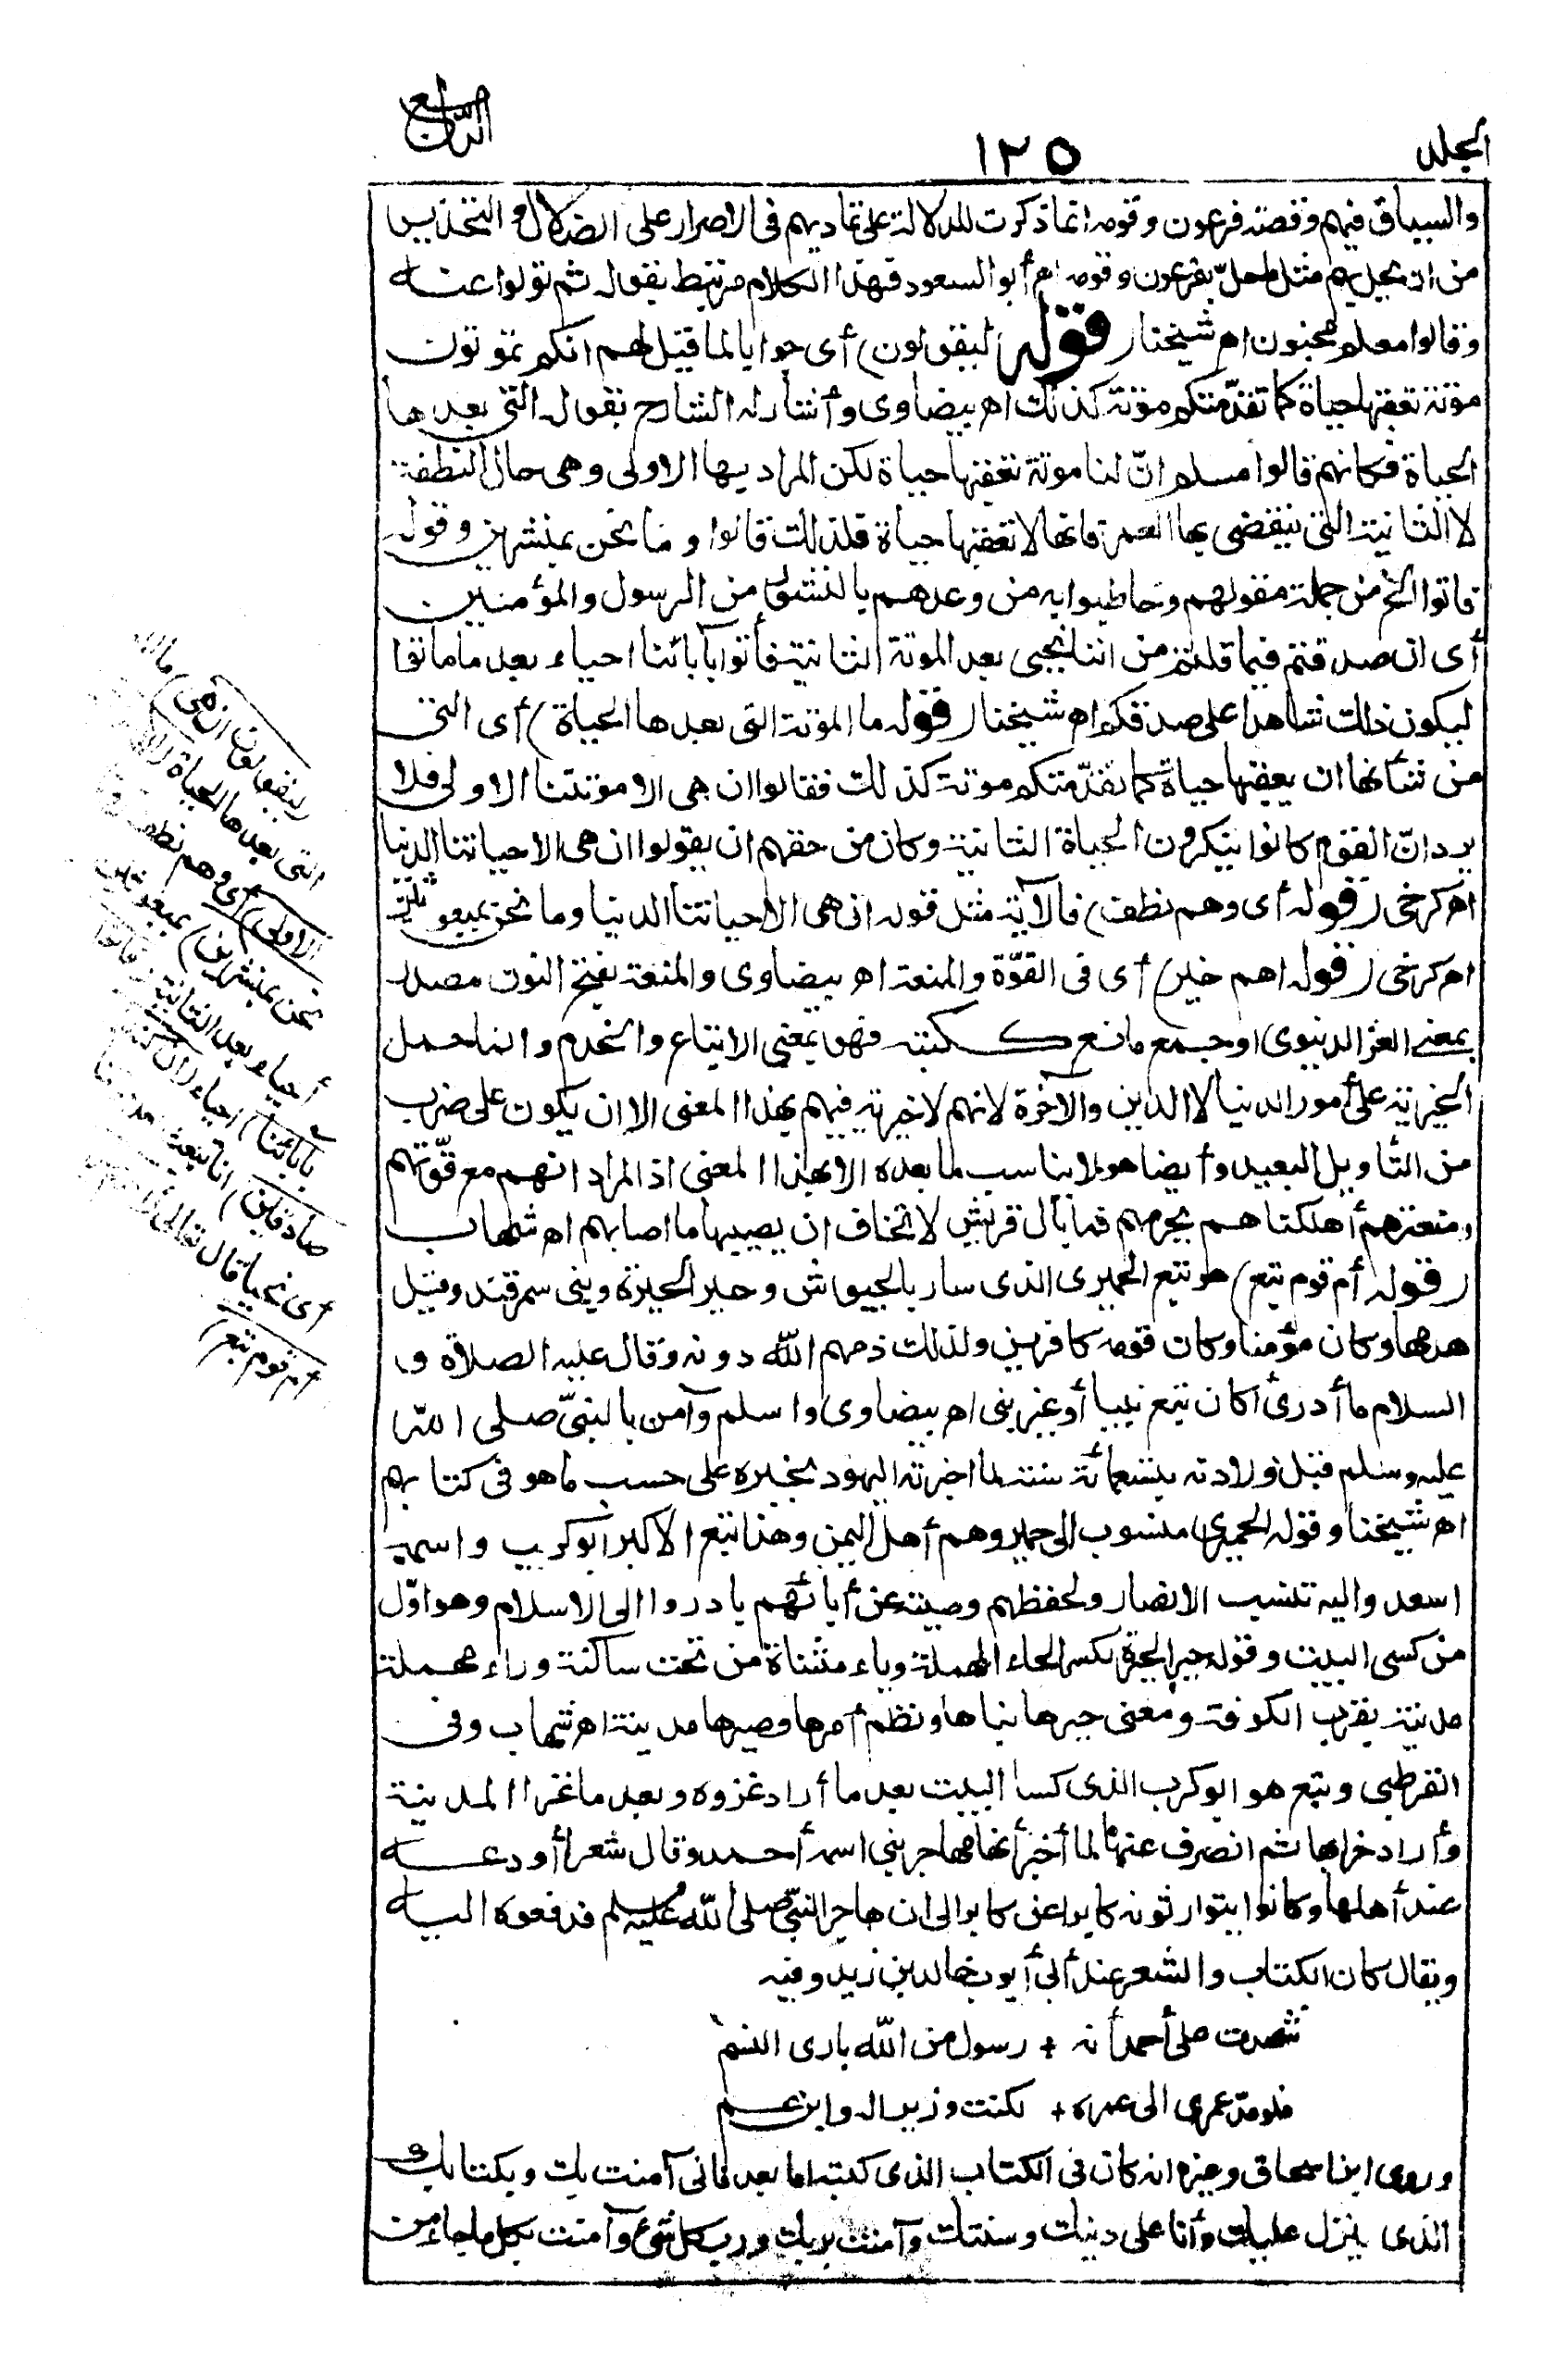 المجلد
١٢٥
الرابع
والسياق فيهم وقصة فرعون وقومه انما ذكرت للدلالة على تماديهم فى الاصرار على الضلال والتحذير
من ان يحل بهم مثل ما حلّ بفرعون وقومه اه أبو السعود فهذا الكلام مرتبط بقوله ثم تولوا عنه
وقالوا معلم مجنون اه شيخنا (قوله ليقولون) أى جوابا لما قيل لهم انكم تموتون
موتة تعقبها حياة كما تقدّمتكم موتة كذلك اه بيضاوى وأشار له الشارح بقوله التى بعدها
الحياة فكانهم قالوا مسلم انّ لنا موتة تعقبها حياة لكن المراد بها الاولى وهى حال النطفة
لا الثانية التى ينقضى بها العمر فانها لا تعقبها حياة فلذلك قالوا وما نحن بمنشرين وقوله
فاتوا الخ من جملة مقولهم وخاطبوا به من وعدهم بالنشور من الرسول والمؤمنين
أى ان صدقتم فيما قلتم من اننا نحيى بعد الموتة الثانية فأتوا بآبائنا احياء بعد ما ماتوا
ليكون ذلك شاهدا على صدقكم اه شيخنا (قوله ما الموتة التى بعدها الحياة) أى التى
من شأنها ان يعقبها حياة كما تقدّمتكم موتة كذلك فقالوا ان هى الا موتتنا الاولى فلا
يرد انّ القوم كانوا ينكرون الحياة الثانية وكان من حقهم ان يقولوا ان هى الا حياتنا الدنيا
اه كرخى (قوله أى وهم نطف) فالآية مثل قوله ان هى الا حياتنا الدنيا وما نحن بمبعوثين
اه كرخى (قوله اهم خير) أى فى القوّة والمنعة اه بيضاوى والمنعة بفتح النون مصدر
بمعنى العز الدنيوى او جمع مانع ككتبة فهو بمعنى الاتباع والخدم وانما حمل
الخيرية على أمور الدنيا لا الدين والآخرة لانهم لا خيرية فيهم بهذا المعنى الا ان يكون على ضرب
من التأويل البعيد وأيضا هو لا يناسب لما بعده الا بهذا المعنى اذ المراد انهم مع قوّتهم
ومنعتهم أهلكناهم بجرمهم فما بال قريش لا تخاف ان يصيبها ما اصابهم اه شهاب
(قوله أم قوم تبع) هو تبع الحميرى الذى سار بالجيوش وحير الحيرة وبنى سمرقند وقيل
هدمها وكان مؤمنا وكان قومه كافرين ولذلك ذمهم الله دونه وقال عليه الصلاة و
السلام ما أدرى أكان تبع نبيا أو غير نبى اه بيضاوى واسلم وآمن بالنبىّ صلى الله
عليه وسلم قبل ولادته بتسعمائة سنة لما اخبرته اليهود بخبره على حسب ما هو فى كتابهم
اه شيخنا وقوله الحميرى منسوب الى حمير وهم أهل اليمن وهذا تبع الاكبر ابو كرب واسمه
اسعد واليه تنسب الانصار ولحفظهم وصيته عن أبائهم بادروا الى الاسلام وهو اوّل
من كسى البيت وقوله حير الحيرة بكسر الحاء المهملة وياء مثناة من تحت ساكنة وراء مهملة
مدينة بقرب الكوفة ومعنى حيرها بناها ونظم أمرها وصيرها مدينة اه شهاب وفى
القرطبى وتبع هو ابو كرب الذى كسا البيت بعد ما أراد غزوه وبعد ما غزا المدينة
وأراد خرابها ثم انصرف عنها لما أخبر أنها مهاجر نبى اسمه أحمد وقال شعرا أودعه
عند أهلها وكانوا يتوارثونه كابرا عن كابر الى ان هاجر النبىّ صلى الله عليه وسلم فدفعوه اليه
ويقال كان الكتاب والشعر عند أبى أيوب خالد بن زيد وفيه
شهدت على أحمد أنه + رسول من الله بارى النسم
فلو مدّ عمرى الى عمره + لكنت وزيرا له وابن عم
وروى ابن اسحاق وغيره انه كان فى الكتاب الذى كتبه اما بعد فانى آمنت بك وبكتابك
الذى ينزل عليك وأنا على دينك وسنتك وآمنت بربك ورب كل شئ وآمنت بكل ما جاء من
(ليقولون ان هى) ما
التى بعدها الحياة
الاولى) أى وهم نطف
نحن بمنشرين) بمبعوثين
أحياء بعد الثانية (فاتوا
بآبائنا) احياء (ان كنتم
صادقين) انا نبعث بعد
أى نحيا قال تعالى
أم قوم تبع)